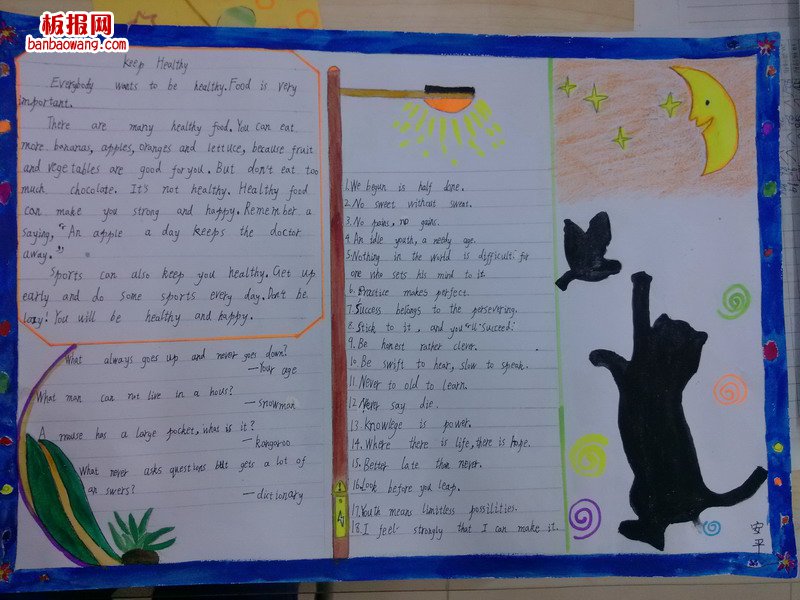 板报网
banbaowang.com
Keep Healthy
Everybody wants to be healthy. Food is very
important.
There are many healthy food. You can eat
more bananas, apples, oranges and lettuce, because fruit
and vegetables are good for you. But don't eat too
much chocolate. It's not healthy. Healthy food
can make you strong and happy. Remember a
saying, "An apple a day keeps the doctor
away."
Sports can also keep you healthy. Get up
early and do some sports every day. Don't be
lazy! You will be healthy and happy.
What always goes up and never goes down?
—Your age
What man can not live in a hous?
—snowman
A mouse has a large pocket, what is it?
—kangaroo
What never asks questions but gets a lot of
answers?
—dictionary
1. We begun is half done.
2. No sweet without sweat.
3. No pains, no gains.
4. An idle youth, a needy age.
5. Nothing in the world is difficult for
one who sets his mind to it.
6. Practice makes perfect.
7. Success belongs to the persevering.
8. Stick to it, and you'll succeed.
9. Be honest rather clever.
10. Be swift to hear, slow to speak.
11. Never to old to learn.
12. Never say die.
13. Knowlege is power.
14. Where there is life, there is hope.
15. Better late than never.
16. Look before you leap.
17. Youth means limitless possibilities.
18. I feel strongly that I can make it.
安平